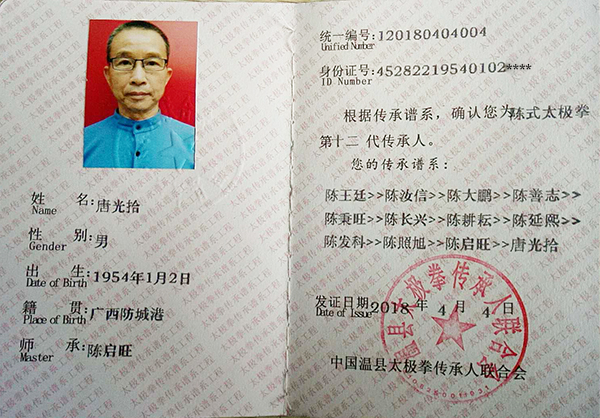 姓 名:唐光拾
Name
性 别:男
Gender
出 生:1954年1月2日
Date of Birth
籍 贯:广西防城港
Place of Birth
师 承:陈启旺
Master
统一编号:120180404004
Unified Number
身份证号:45282219540102****
ID Number
根据传承谱系，确认您为陈式太极拳
第十二 代传承人。
您的传承谱系:
陈王廷>>陈汝信>>陈大鹏>>陈善志>>
陈秉旺>>陈长兴>>陈耕耘>>陈延熙>>
陈发科>>陈照旭>>陈启旺>>唐光拾
发证日期:2018 年 4 月 4 日
Date of Issue
中国温县太极拳传承人联合会